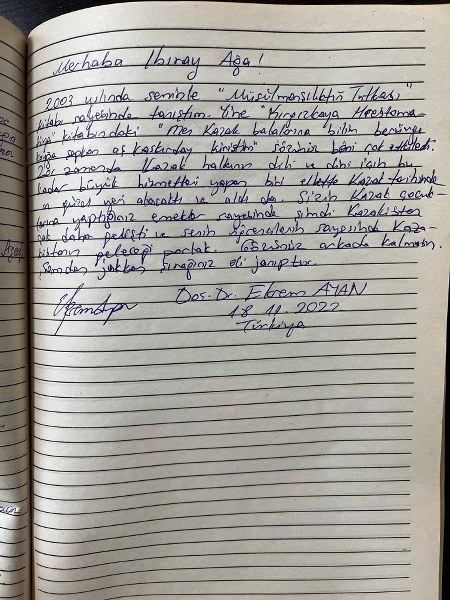 Merhaba Ibıray Ağa!
2003 yılında seninle "Müsülmanşılıktıñ Tutkası"
kitabı sayesinde tanıştım. Yine "Kırgızkaya Hrestoma-
tiya" kitabındaki "Men Kazak balalarına bilim berüvge
aşkaskırday kiristim" sözünüz beni çok etkiledi.
Zor zamanda Kazak halkının dili ve dini için bu
kadar büyük hizmetleri yapan biri elbette Kazak tarihinde
en güzel yeri alacaktı ve aldı da. Sizin Kazak çocuk-
larına yaptığınız emekler sayesinde şimdi Kazakistan
çok daha gelişti ve senin öğrencilerin sayesinde Kaza-
kistanın geleceği parlak. Gözünüz arkada kalmasın.
jakkan şırağınız äli janıptur.
Doş. Dr. Ekrem AYAN
18.11.2022
Türkiya